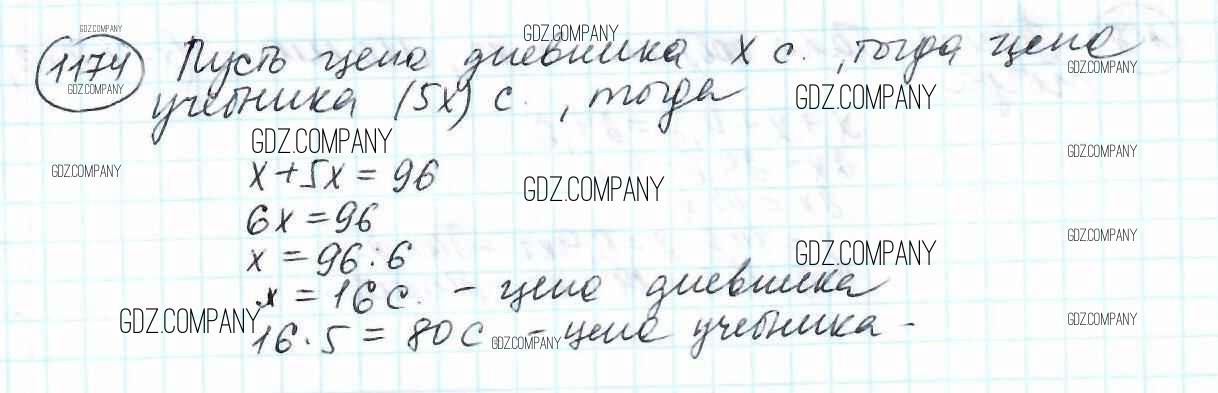 GDZ.COMPANY
GDZ.COMPANY
1174 Пусть цена дневника x с. , тогда цена
GDZ.COMPANY
GDZ.COMPANY
учебника (5x) с. , тогда
GDZ.COMPANY
GDZ.COMPANY
GDZ.COMPANY
GDZ.COMPANY
x+5x=96
GDZ.COMPANY
6x=96
GDZ.COMPANY
x=96:6
GDZ.COMPANY
x=16 с. – цена дневника
GDZ.COMPANY
GDZ.COMPANY
16·5=80 с – цена учебника -
GDZ.COMPANY